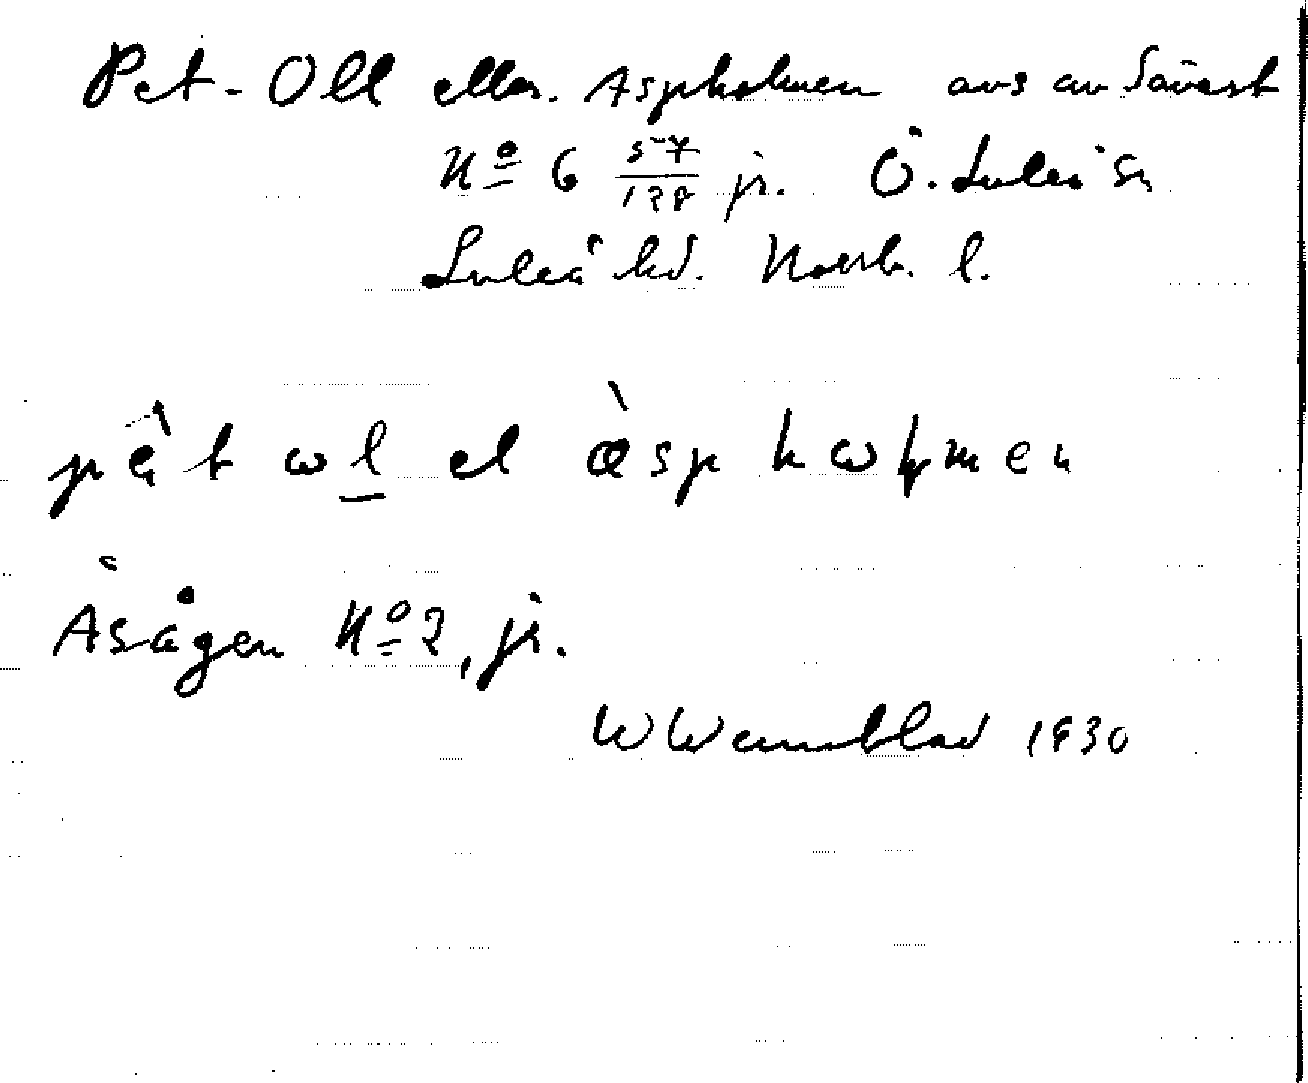 Pet-Oll eller Aspholmen avs av Sävast
No 6 57/128 jr. Ö. Luleå sn
Luleå hd. Norrb. l.
pèt ωl el àsp hωlmen
Asågen No 2, jr.
W Wennblad 1930